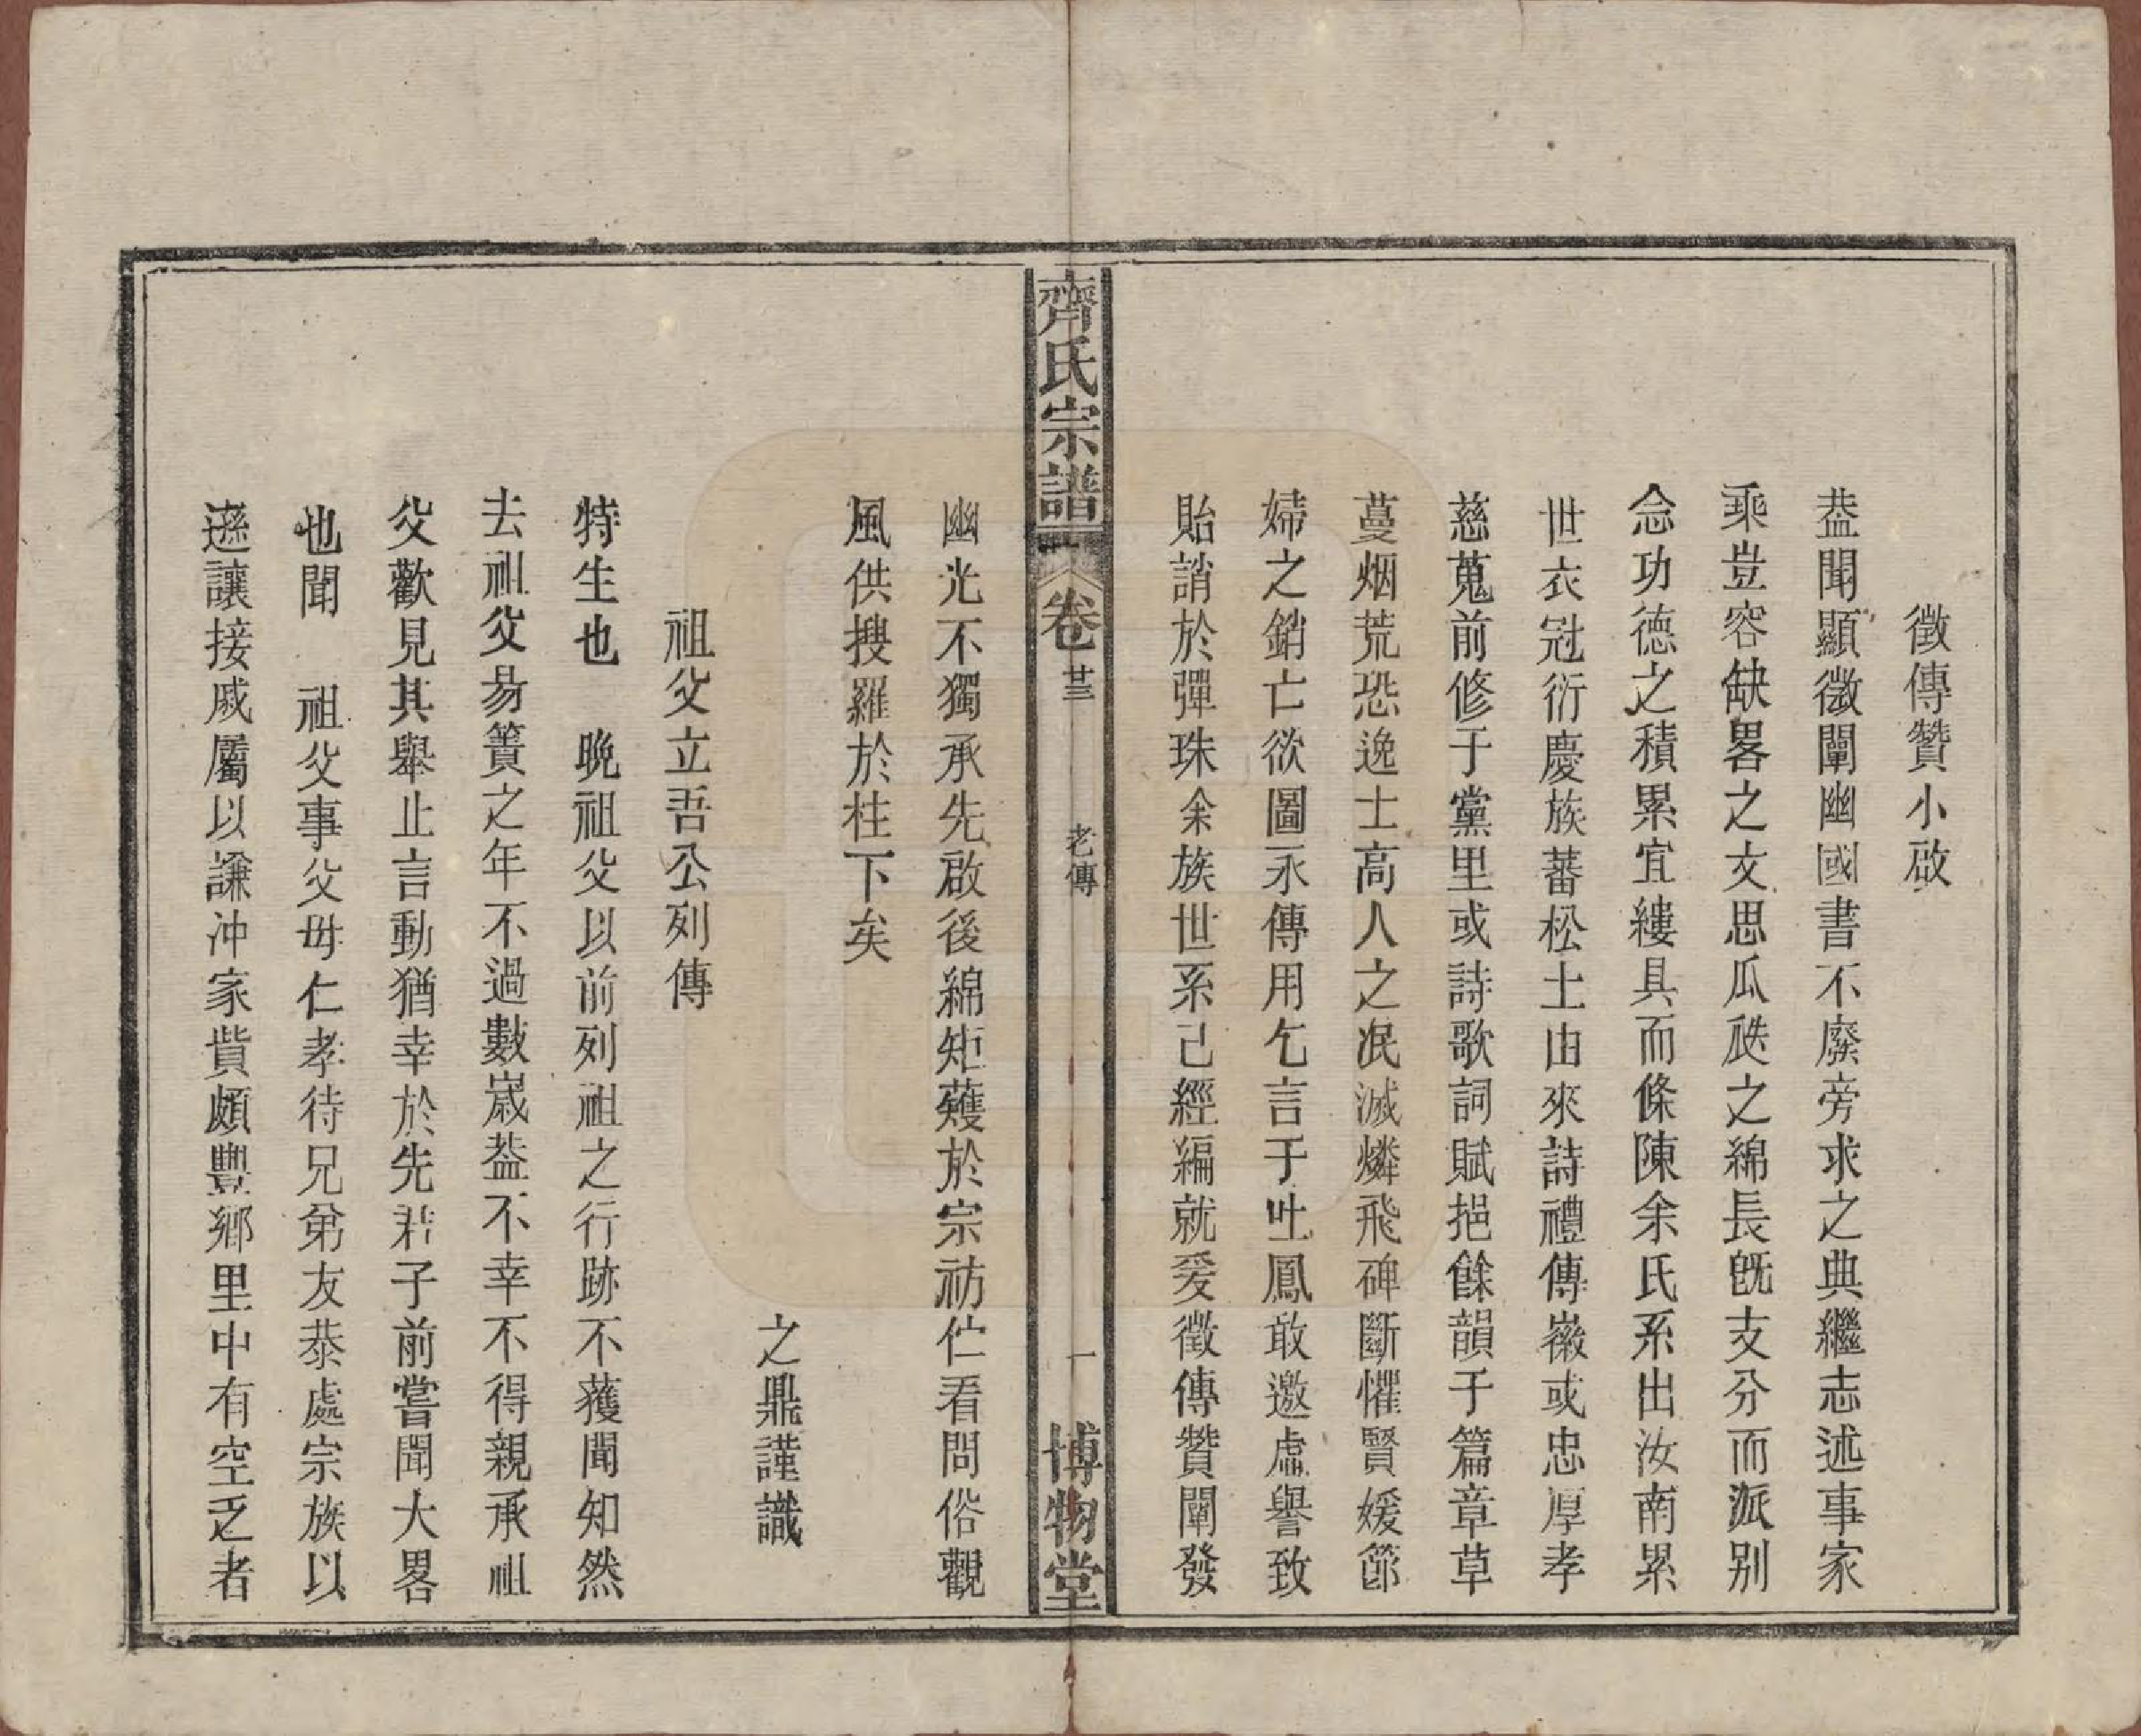 徵傳贊小啟
葢聞顯微闡幽國書不廢旁求之典繼志述事家
乘豈容缺畧之文思瓜瓞之綿長旣支分而派别
念功德之積累宜縷具而條陳余氏系出汝南累
世衣冠衍慶族蕃松土由來詩禮傳徽或忠厚孝
慈蒐前修于黨里或詩歌詞賦挹餘韻于篇章草
蔓烟荒恐逸士高人之泯滅燐飛碑斷懼賢媛節
婦之銷亡欲圖永傳用乞言于吐鳳敢邀虛譽致
貽誚於彈珠余族世系已經編就爰徵傳贊闡發
齊氏宗譜
卷
廿三
老傳
一
博物堂
幽光不獨承先啟後綿矩矱於宗祊伫看問俗觀
風供搜羅於柱下矣
之鼎謹識
祖父立吾公列傳
特生也 晚祖父以前列祖之行跡不獲聞知然
去祖父易簀之年不過數歲葢不幸不得親承祖
父歡見其舉止言動猶幸於先君子前嘗聞大畧
也聞 祖父事父母仁孝待兄弟友恭處宗族以
遜讓接戚屬以謙沖家貲頗豐鄉里中有空乏者